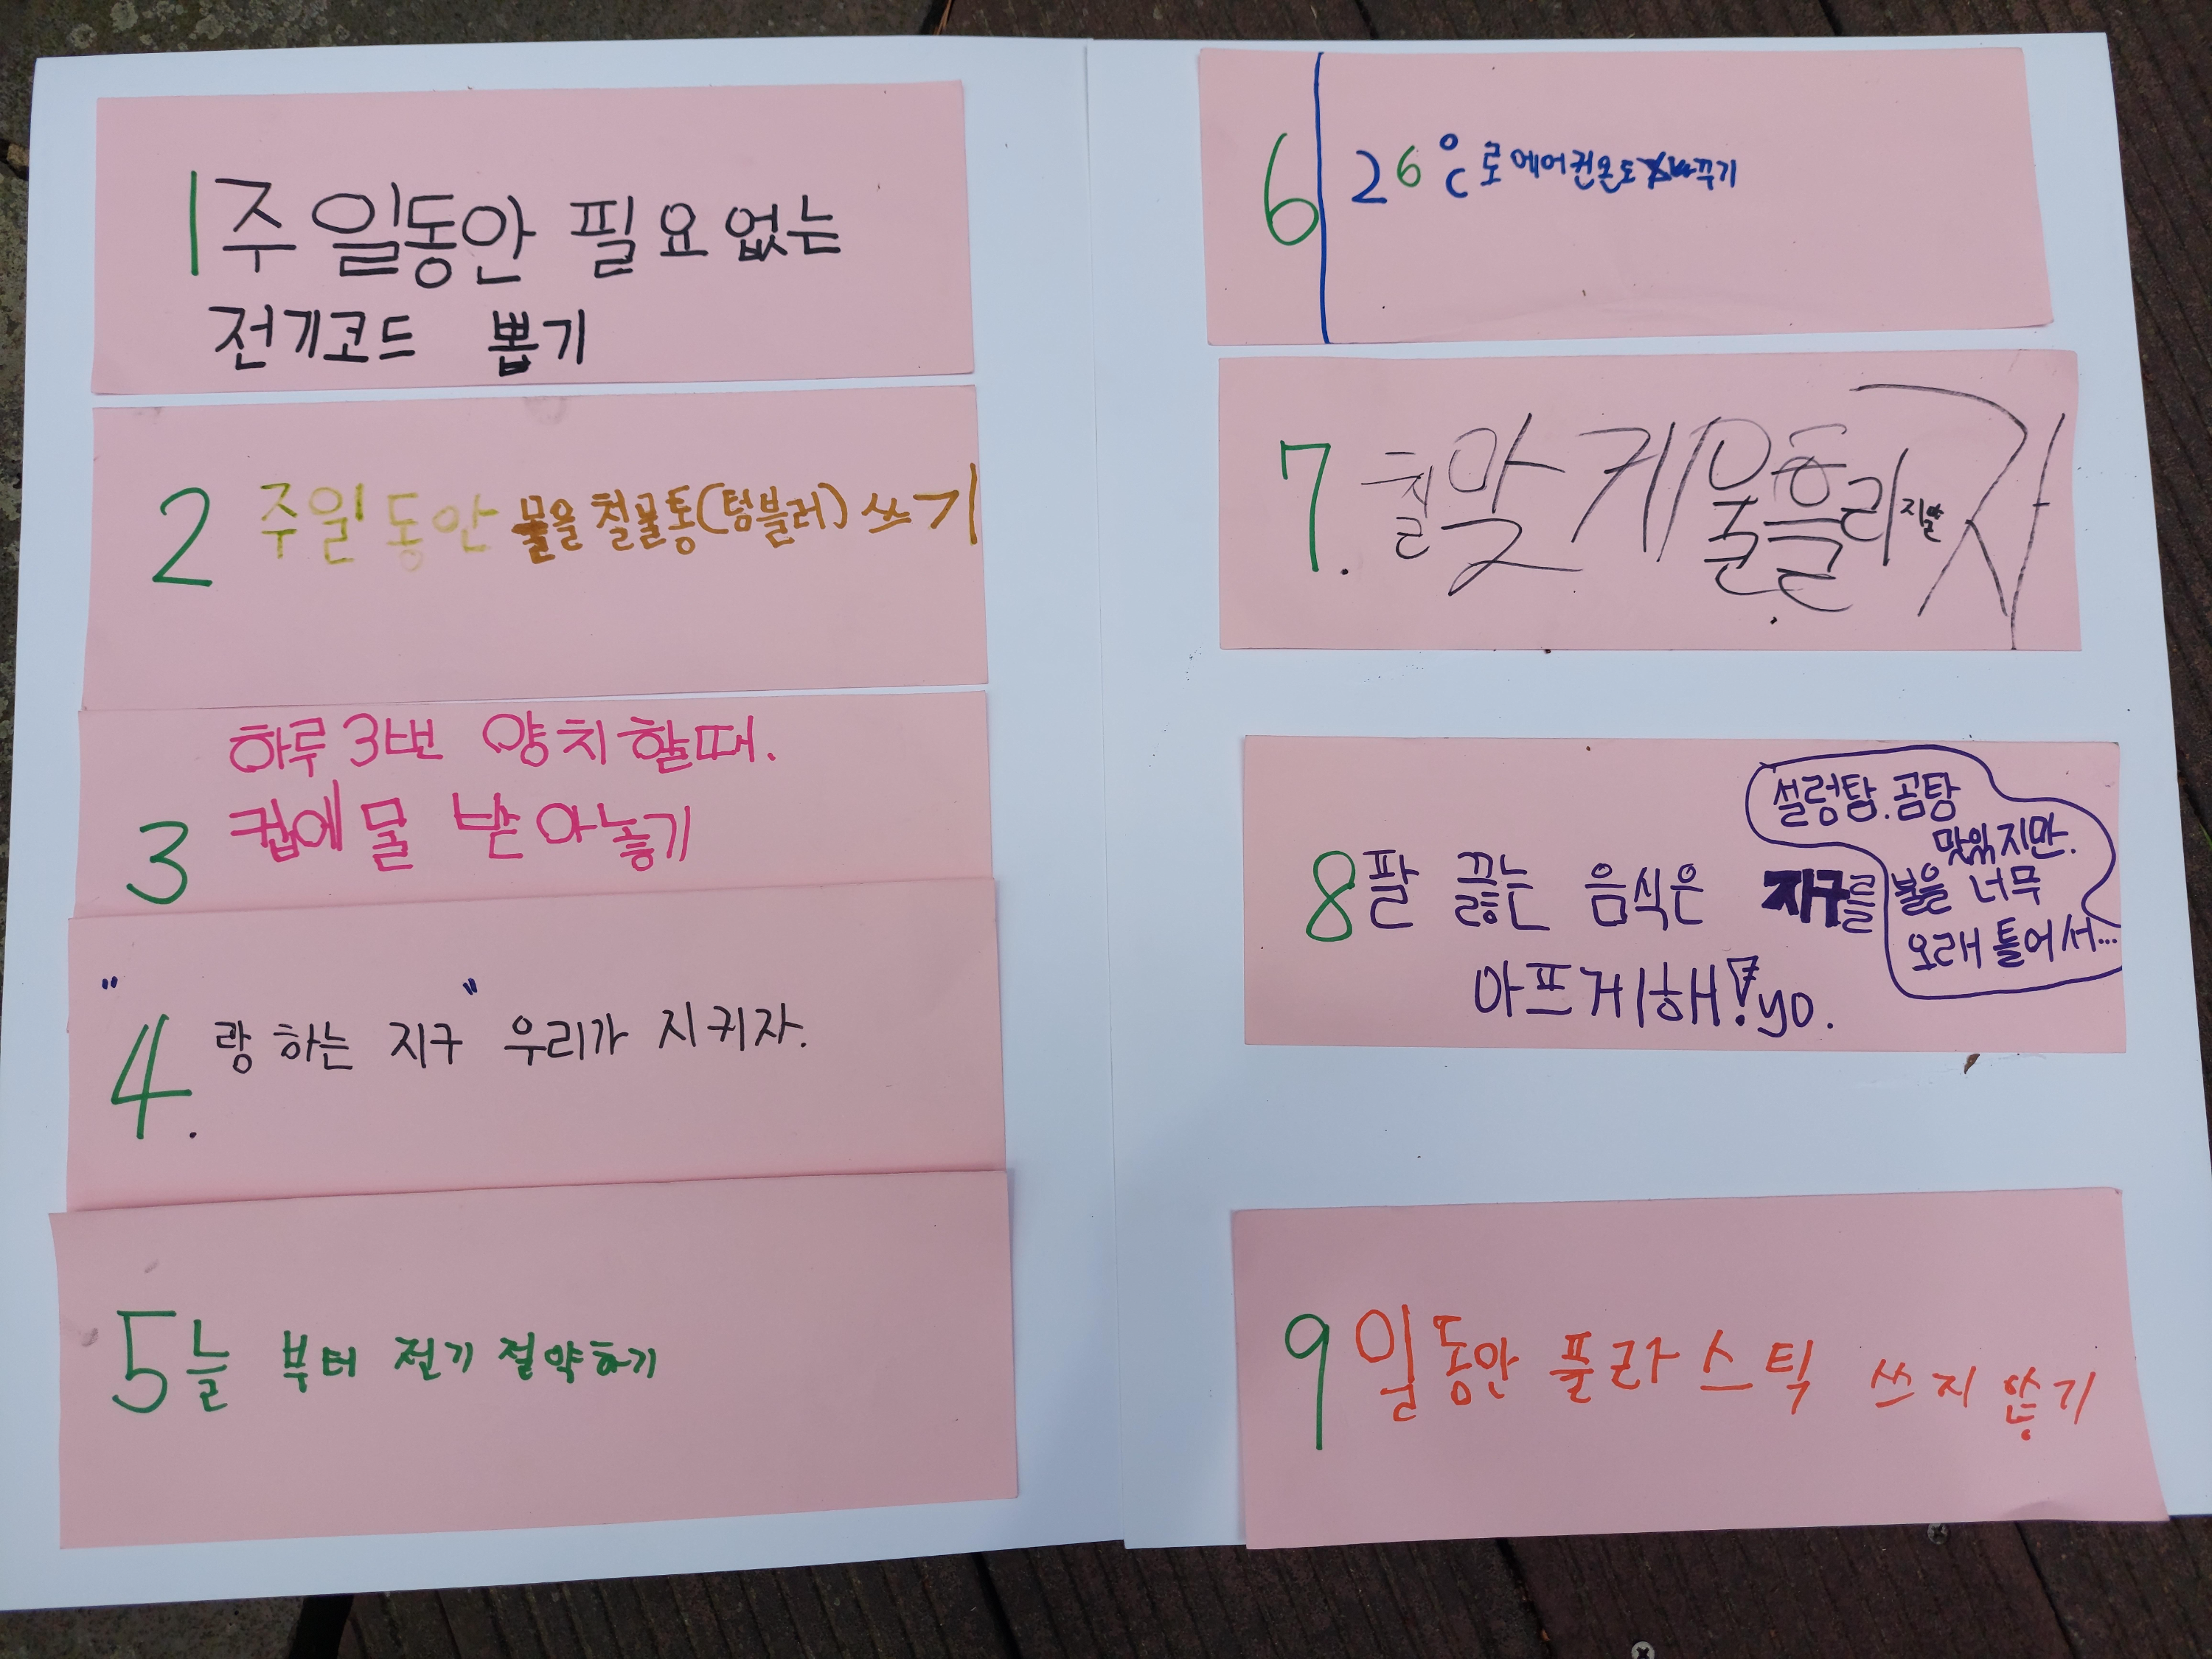 1주일동안 필요없는
전기코드 뽑기
2주일동안 물을 철물통(텀블러) 쓰기
하루3번 양치할때.
3 컵에 물 받아놓기
"4.랑하는 지구" 우리가 지키자.
5늘 부터 전기 절약하기
6 26°C로 에어컨온도 바꾸기
7.
8팔 끓는 음식은 지구를
아프게해!yo.
설렁탐.곰탕
맛있지만.
불을 너무
오래 틀어서...
9일동안 플라스틱 쓰지 않기